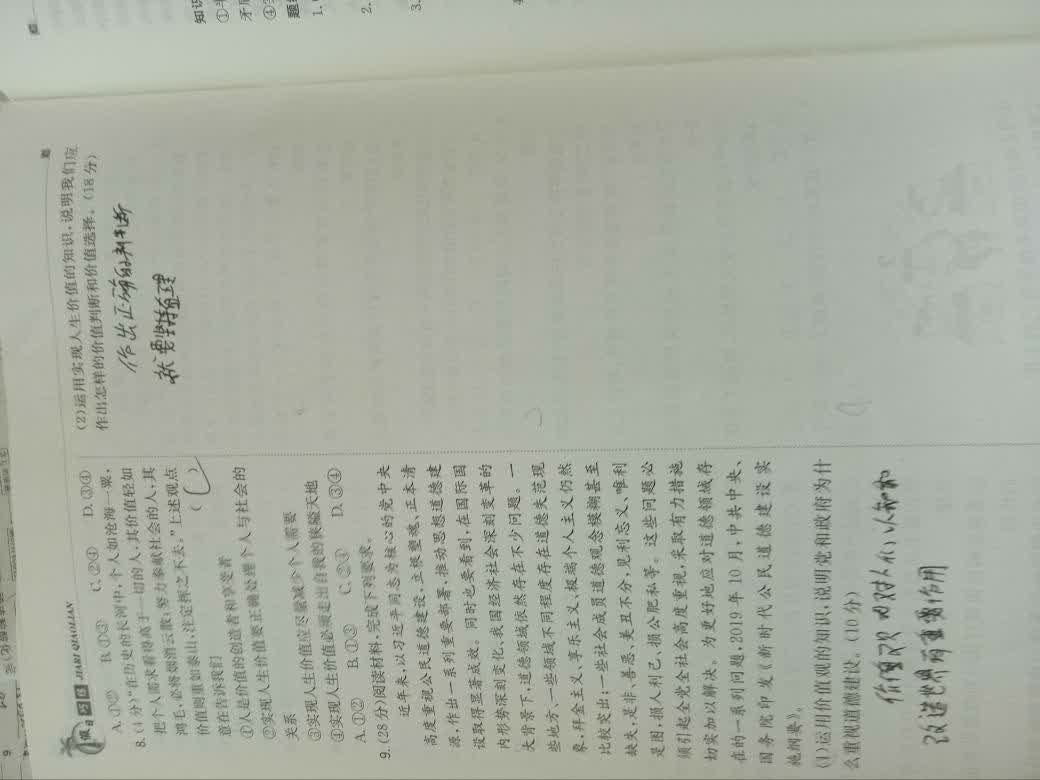 假日巧练 JIARI QIAOLIAN
A.①② B.①③ C.②④ D.③④
8.(4分)“在历史的长河中,个人如沧海一粟,
把个人需求看得高于一切的人,其价值轻如
鸿毛,必将烟消云散;努力奉献社会的人,其
价值则重如泰山,注定挥之不去。”上述观点
意在告诉我们 ( C )
①人是价值的创造者和享受者
②实现人生价值要正确处理个人与社会的
关系
③实现人生价值应尽量减少个人需要
④实现人生价值必须走出自我的狭隘天地
A.①② B.①③ C.②④ D.③④
9.(28分)阅读材料,完成下列要求。
近年来,以习近平同志为核心的党中央
高度重视公民道德建设,立根塑魂、正本清
源,作出一系列重要部署,推动思想道德建
设取得显著成效。同时也要看到,在国际国
内形势深刻变化、我国经济社会深刻变革的
大背景下,道德领域依然存在不少问题。一
些地方、一些领域不同程度存在道德失范现
象,拜金主义、享乐主义、极端个人主义仍然
比较突出;一些社会成员道德观念模糊甚至
缺失,是非、善恶、美丑不分,见利忘义、唯利
是图,损人利己、损公肥私等。这些问题必
须引起全党全社会高度重视,采取有力措施
切实加以解决。为更好地应对道德领域存
在的一系列问题,2019年10月,中共中央、
国务院印发《新时代公民道德建设实
施纲要》。
(1)运用价值观的知识,说明党和政府为什
么重视道德建设。(10分)
价值观 对人们认识和
改造世界有重要作用
(2)运用实现人生价值的知识,说明我们应
作出怎样的价值判断和价值选择。(18分)
作出正确的判断
就要坚持真理
知识
①
矛盾
④
题组
1.
2.
3.
4